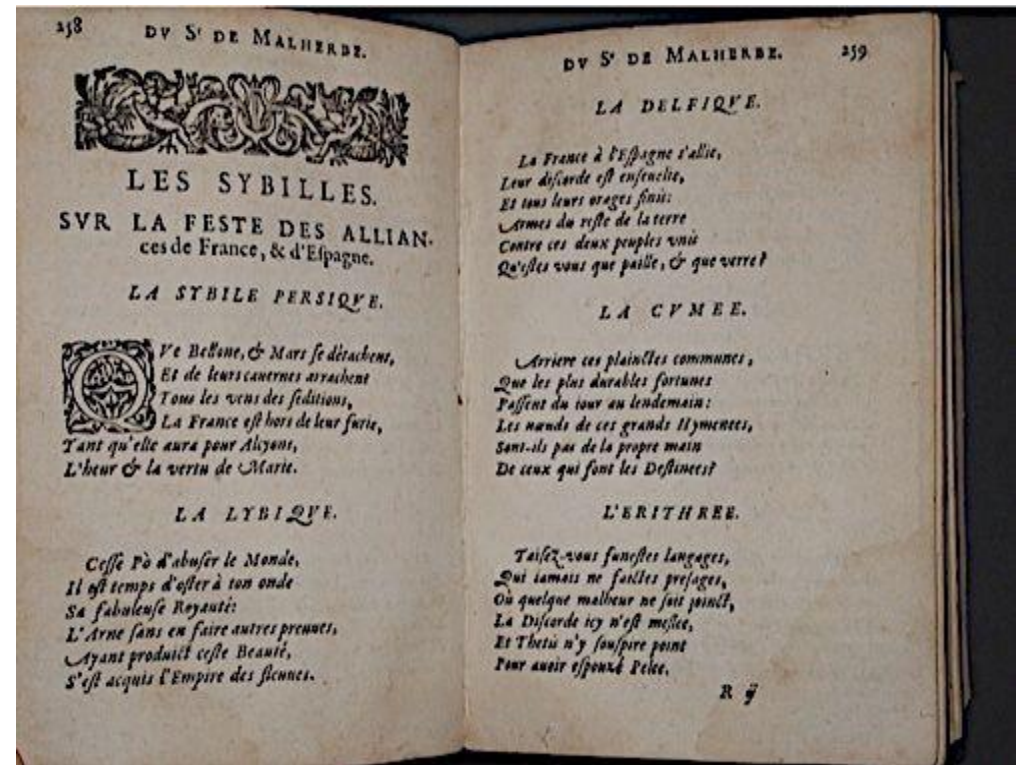 258 DV Sr DE MALHERBE.
LES SYBILLES.
SVR LA FESTE DES ALLIAN-
ces de France, & d'Eſpagne.
LA SYBILE PERSIQVE.
QVe Bellone, & Mars ſe détachent,
Et de leurs cauernes arrachent
Tous les vens des ſeditions,
La France eſt hors de leur furie,
Tant qu'elle aura pour Alcyons,
L'heur & la vertu de Marie.
LA LYBIQVE.
Ceſſe Pò d'abuſer le Monde,
Il eſt temps d'oſter à ton onde
Sa fabuleuſe Royauté:
L'Arne ſans en faire autres preuues,
Ayant produict ceſte Beauté,
S'eſt acquis l'Empire des fleuues.
DV Sr DE MALHERBE. 259
LA DELFIQVE.
La France à l'Eſpagne s'allie,
Leur diſcorde eſt enſeuelie,
Et tous leurs orages finis:
Armes du reſte de la terre
Contre ces deux peuples vnis
Qu'eſtes vous que paille, & que verre?
LA CVMEE.
Arriere ces plainctes communes,
Que les plus durables fortunes
Paſſent du iour au lendemain:
Les nœuds de ces grands Hymenees,
Sont-ils pas de la propre main
De ceux qui font les Deſtinees?
L'ERITHREE.
Taiſez-vous funeſtes langages,
Qui iamais ne faictes preſages,
Où quelque malheur ne ſoit joinct,
La Diſcorde icy n'eſt meſlee,
Et Thetis n'y ſouſpire point
Pour auoir eſpouzé Pelee.
R ij